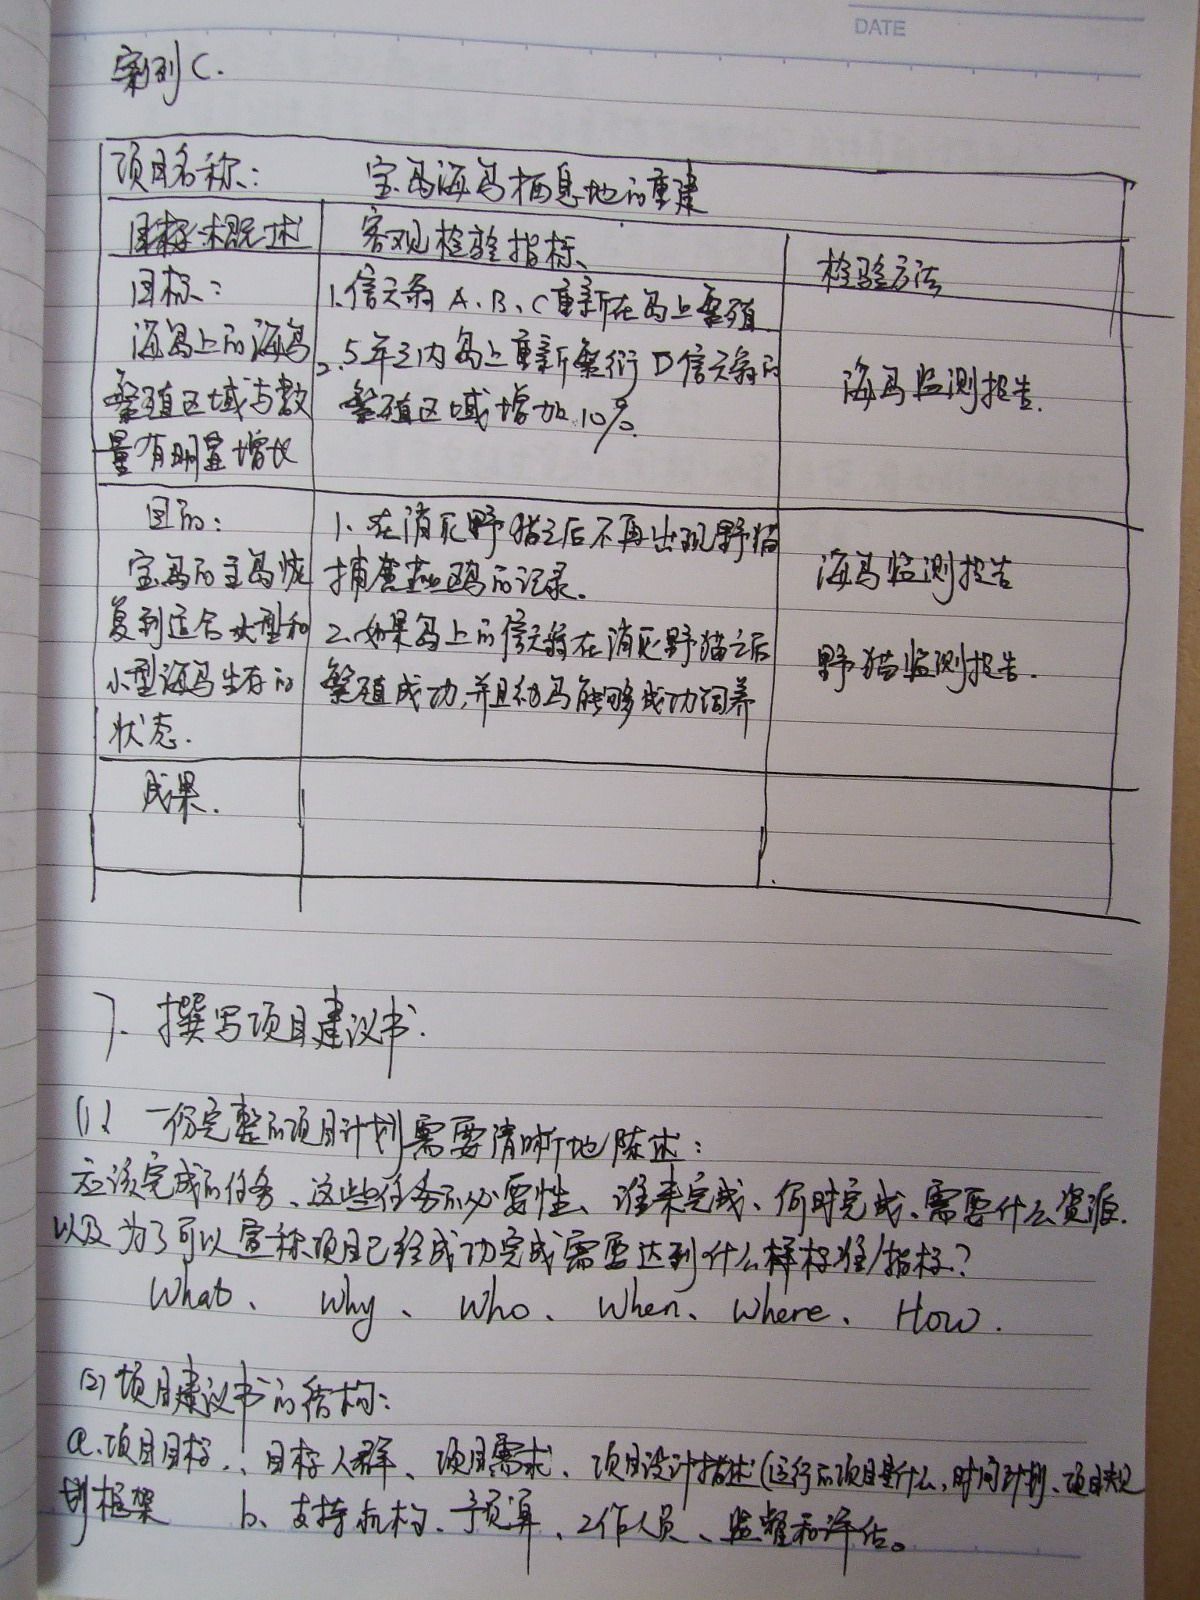 DATE
案列 C.
项目名称: 宝岛海鸟栖息地的重建
目标概述 客观检验指标 检验方法
目标:
海岛上的海鸟
繁殖区域与数
量有明显增长
1.信天翁 A、B、C重新在岛上繁殖.
2.5年之内岛上重新繁衍D信天翁的
繁殖区域增加10%.
海鸟监测报告.
目的:
宝岛的主岛恢
复到适合大型和
小型海鸟生存的
状态.
1. 在消灭野猫之后不再出现野猫
捕食海鸥鸟的记录.
2.如果岛上的信天翁在消灭野猫之后
繁殖成功,并且幼鸟能够成功饲养
海鸟监测报告
野猫监测报告.
成果.
7. 撰写项目建议书.
(1) 一份完整的项目计划需要清晰地陈述:
应该完成的任务、这些任务的必要性、谁来完成、何时完成、需要什么资源.
以及为了可以宣称项目已经成功完成需要达到什么样标准/指标?
What、 Why、 Who、 When、 Where、 How.
(2)项目建议书的结构:
a.项目目标、目标人群、项目需求、项目设计描述(运行的项目是什么,时间计划、项目规
划框架 b、支持机构、予预算、工作人员、监督和评估。